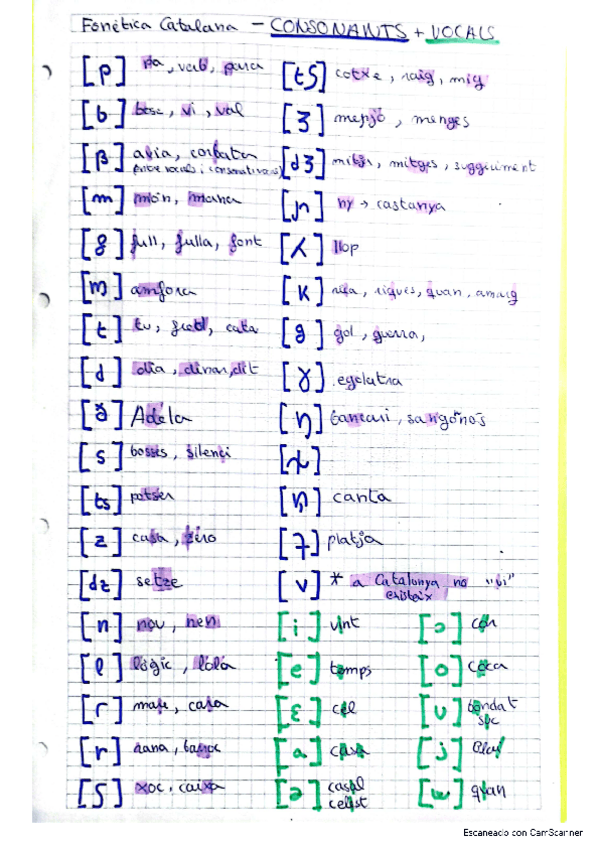 Fonètica Catalana - CONSONANTS + VOCALS
[p] pa, verb, para
[b] bosc, vi, val
[β] avia, corbata
(entre vocals i consonants)
[m] món, mama
[f] full, fulla, font
[ɱ] amfora
[t] tu, fred, cata
[d] dia, dinar, dit
[ð] Adéla
[s] bosses, silenci
[ts] potser
[z] casa, zéro
[dz] setze
[n] nou, nen
[l] lògic, lola
[ɾ] mare, cara
[r] rana, barroc
[ʃ] xoc, caixa
[tʃ] cotxe, raig, mig
[ʒ] menjó, menges
[dʒ] mitja, mitges, suggeriment
[ɲ] ny → castanya
[ʎ] llop
[k] riques, quan, amarg
[g] gol, guerra,
[ɣ] egolatra
[ŋ] bancari, sangonós
[n̪] canta
platja
[v] * a Catalunya no "vi"
existeix
[i] vint
[e] temps
[ɛ] cel
[a] casa
[ə] casal
celest
[ɔ] cor
[o] coca
[u] bondat
soc
[j]
[w] quan
Escaneado con CamScanner